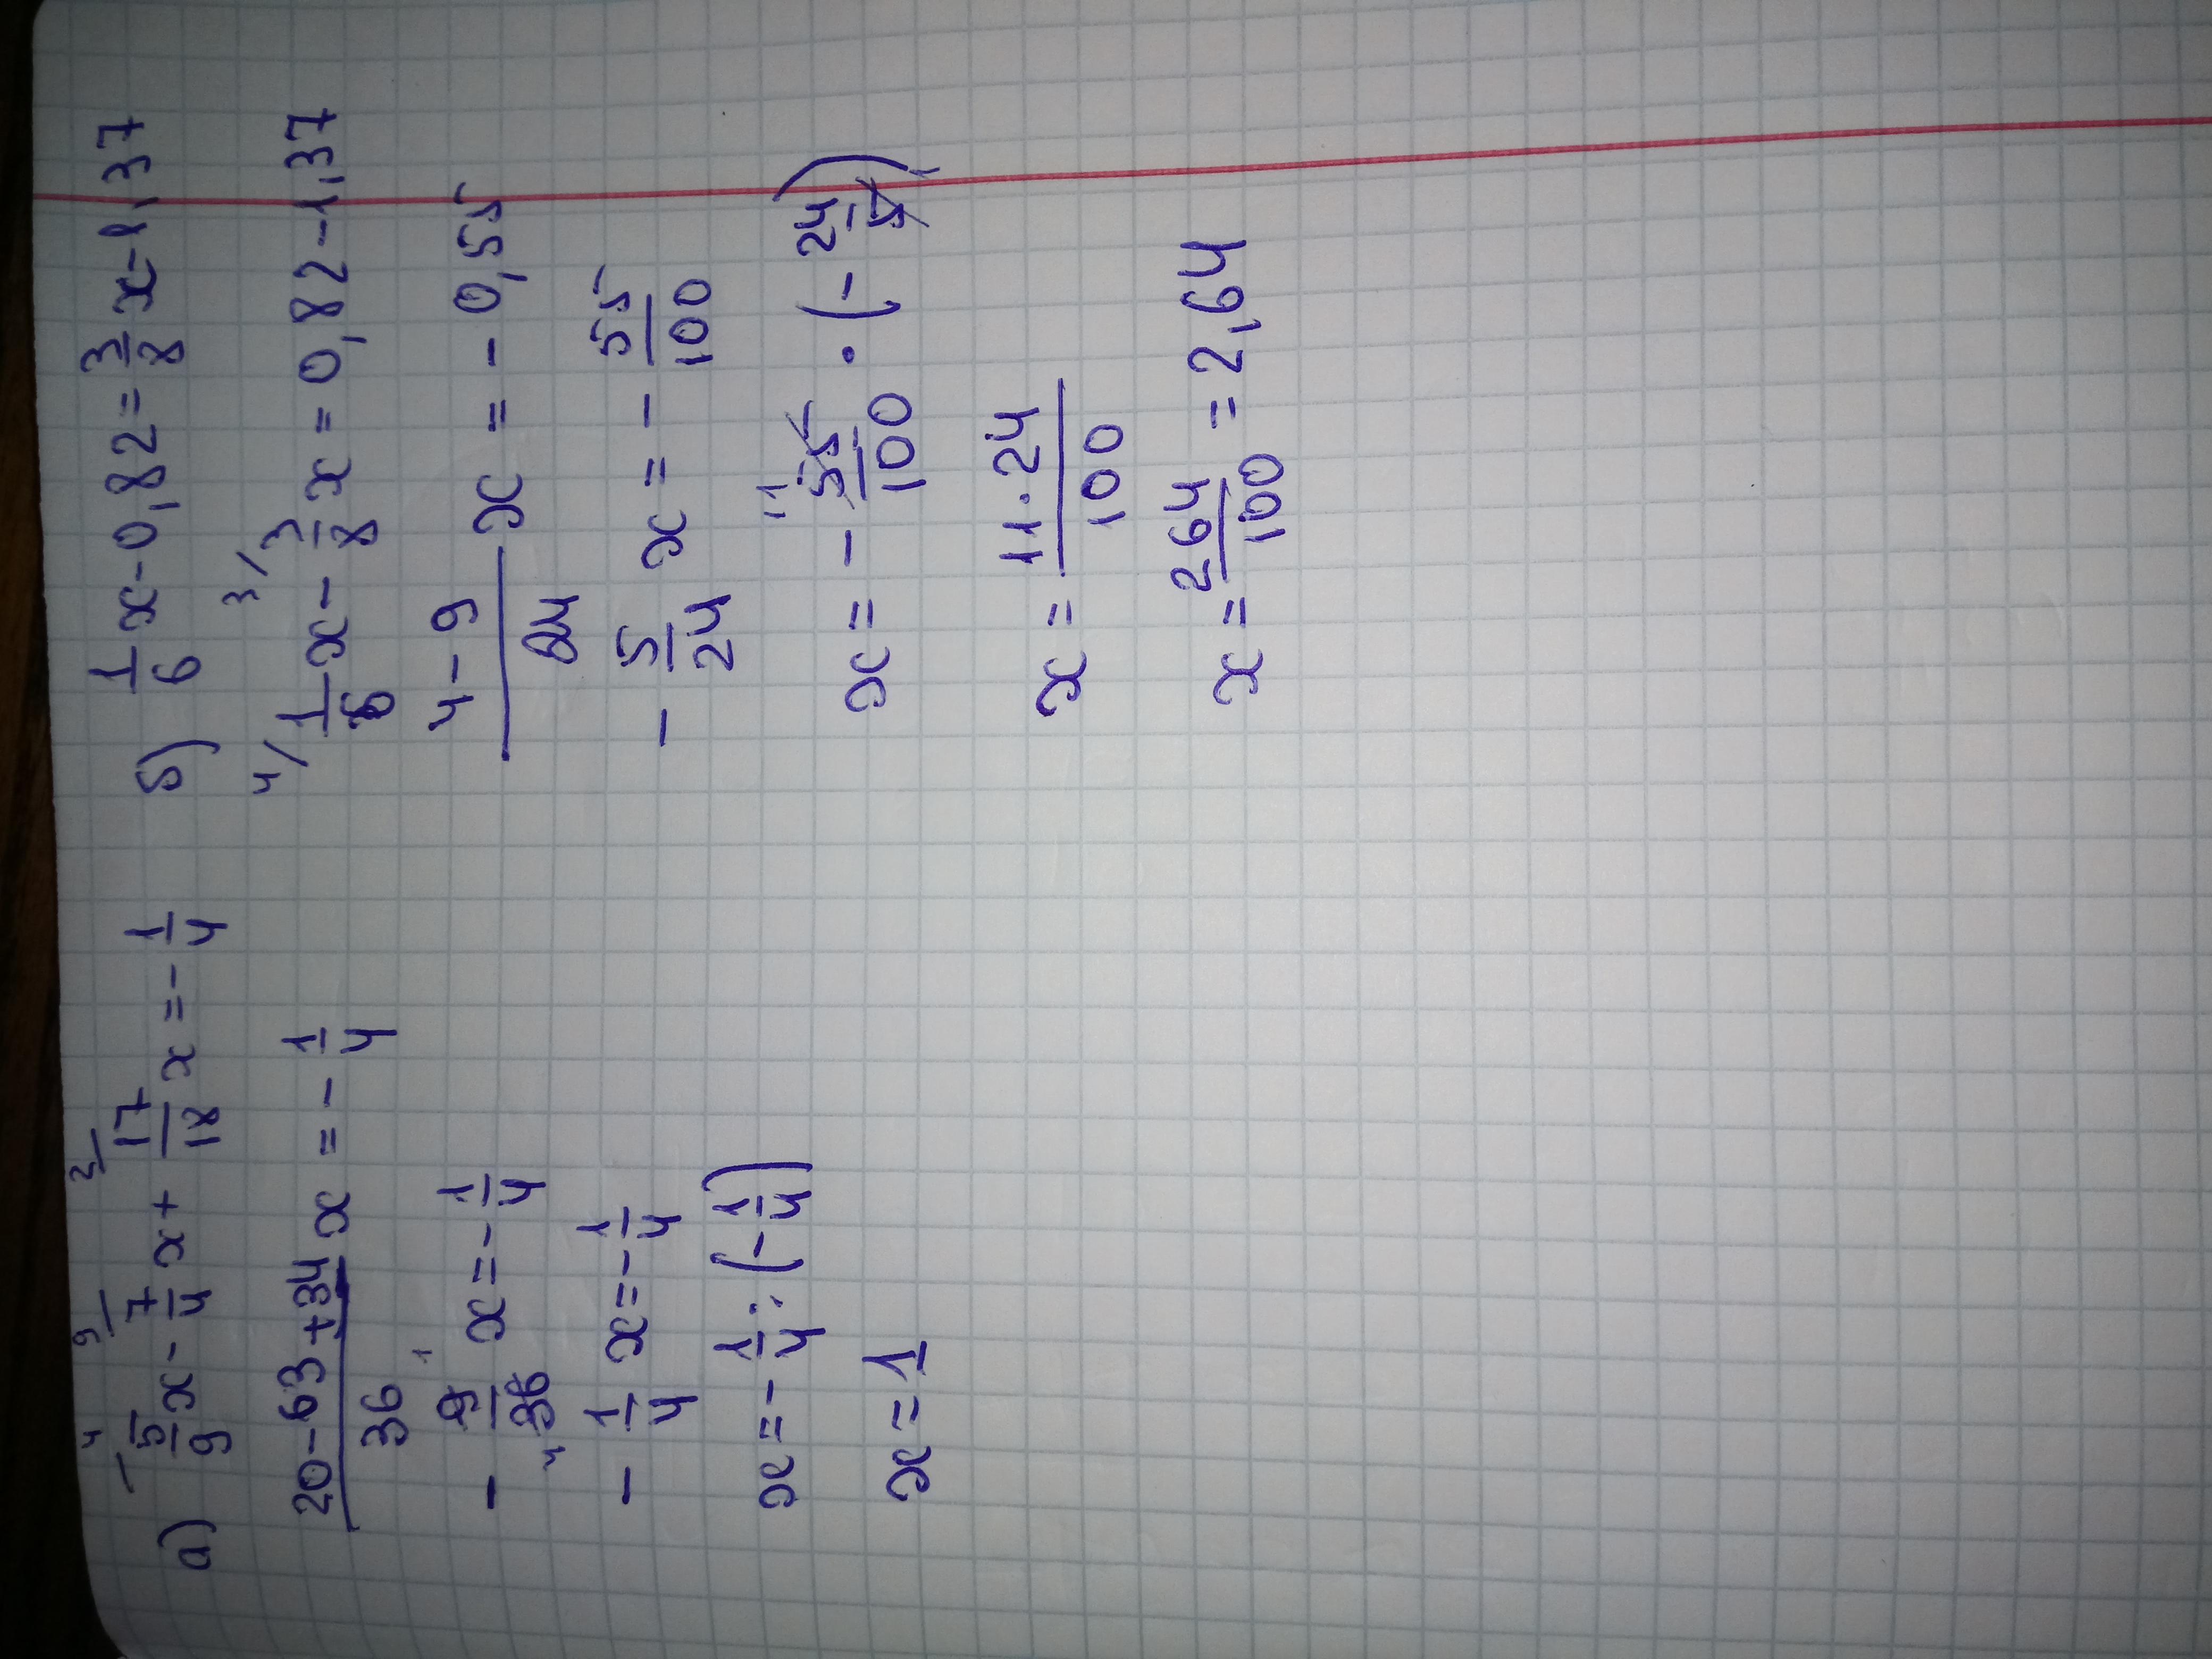 а) 5/9 x - 7/4 x + 17/18 x = - 1/4
(20 - 63 + 34)/36 x = - 1/4
- 9/36 x = - 1/4
- 1/4 x = - 1/4
x = - 1/4 : (- 1/4)
x = 1
б) 1/6 x - 0,82 = 3/8 x - 1,37
1/6 x - 3/8 x = 0,82 - 1,37
(4 - 9)/24 x = - 0,55
- 5/24 x = - 55/100
x = - 55/100 · (- 24/5)
x = 11·24/100
x = 264/100 = 2,64